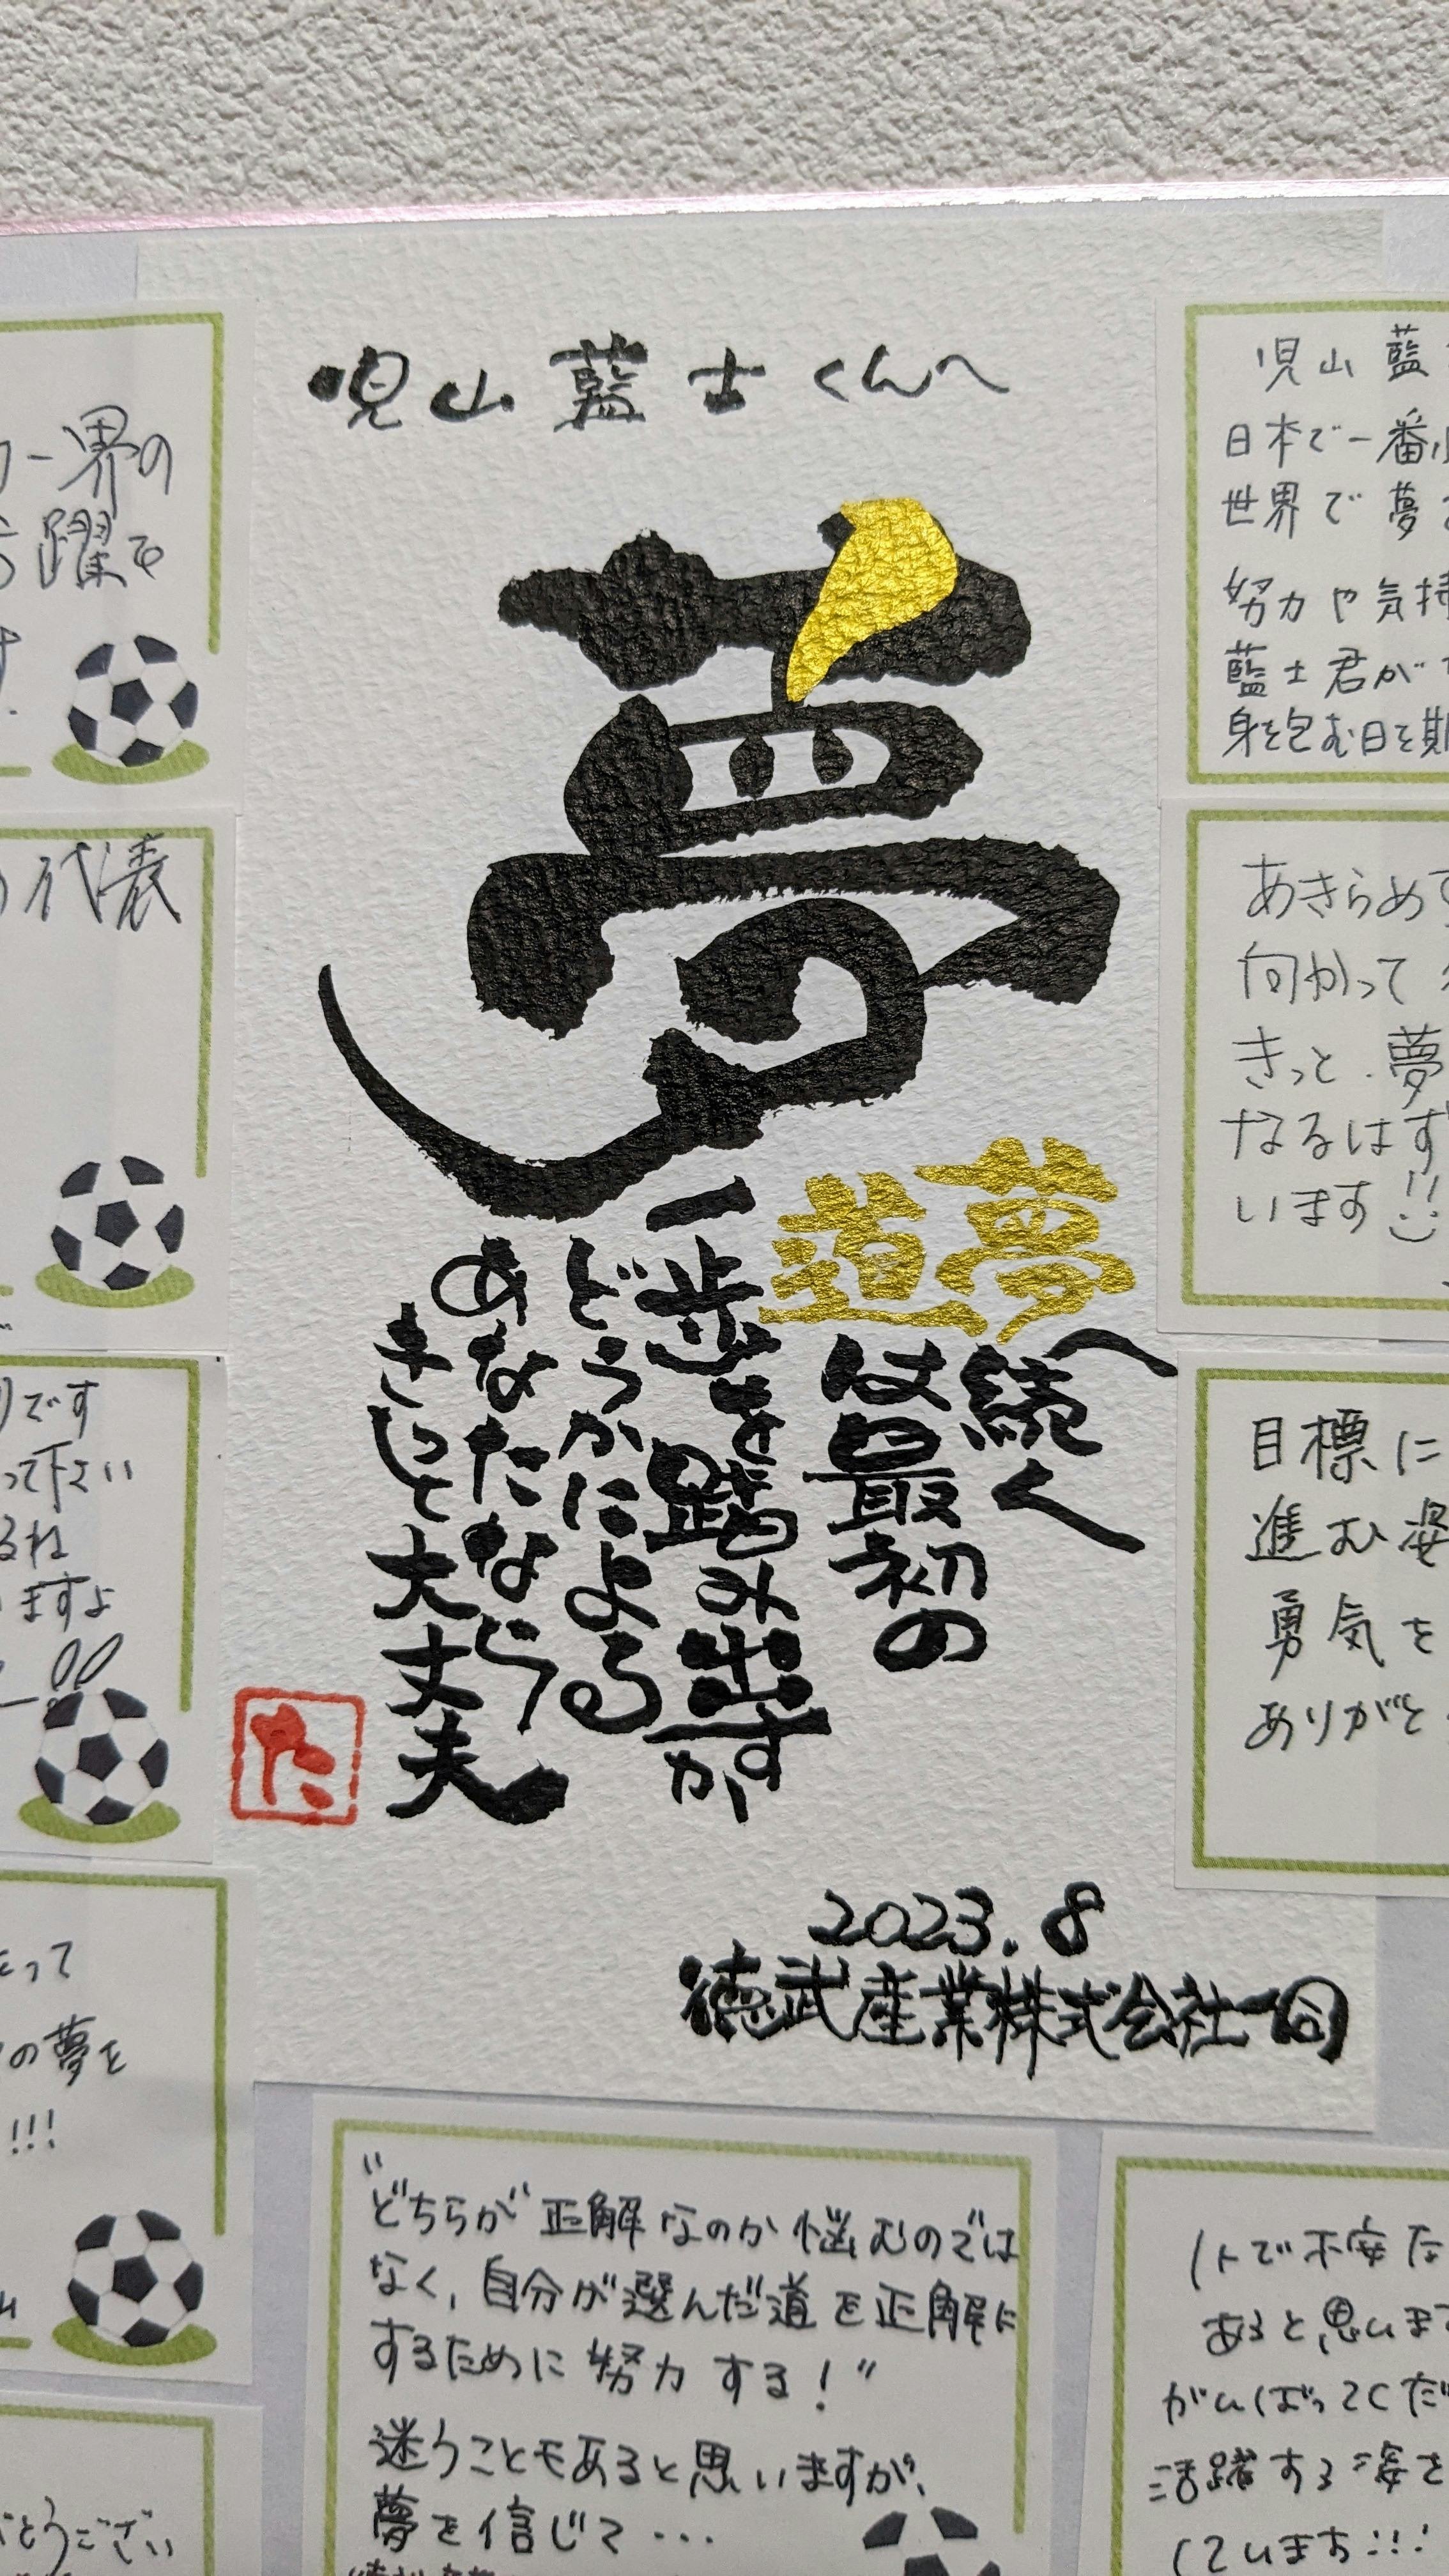 児山藍士くんへ
夢
夢へ続く
道は最初の
一歩を踏み出すか
どうかによる
あなたなら
きっと大丈夫
2023.8
徳武産業株式会社一同
ー界の
躍を
代表
です
って下さい
るね
ますよ
って
の夢を
!!!
とうござい
児山藍
日本で一番
世界で夢
努力や気持
藍士君が
身を包む日を期
あきらめず
向かって
きっと.夢
なるはず
います!!
目標に
進む姿
勇気を
ありがとう
"どちらが正解なのか悩むのでは
なく、自分が選んだ道を正解に
するために努力する!"
迷うこともあると思いますが、
夢を信じて・・・
1人で不安な
あると思います
がんばってくだ
活躍する姿を
しています!!!